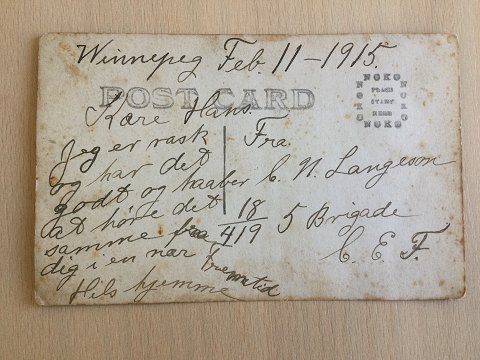 Winnepeg Feb. 11 - 1915.
POST CARD
NOKO
NOKO
NOKO
NOKO
PLACE
STAMP
HERE
Kære Hans.
Jeg er rask
og har det
godt og haaber
at höre det
samme fra
dig i en nær Fremtid
Hils hjemme
Fra
C. N. Langeson
18/419 5 Brigade
C. E. F.